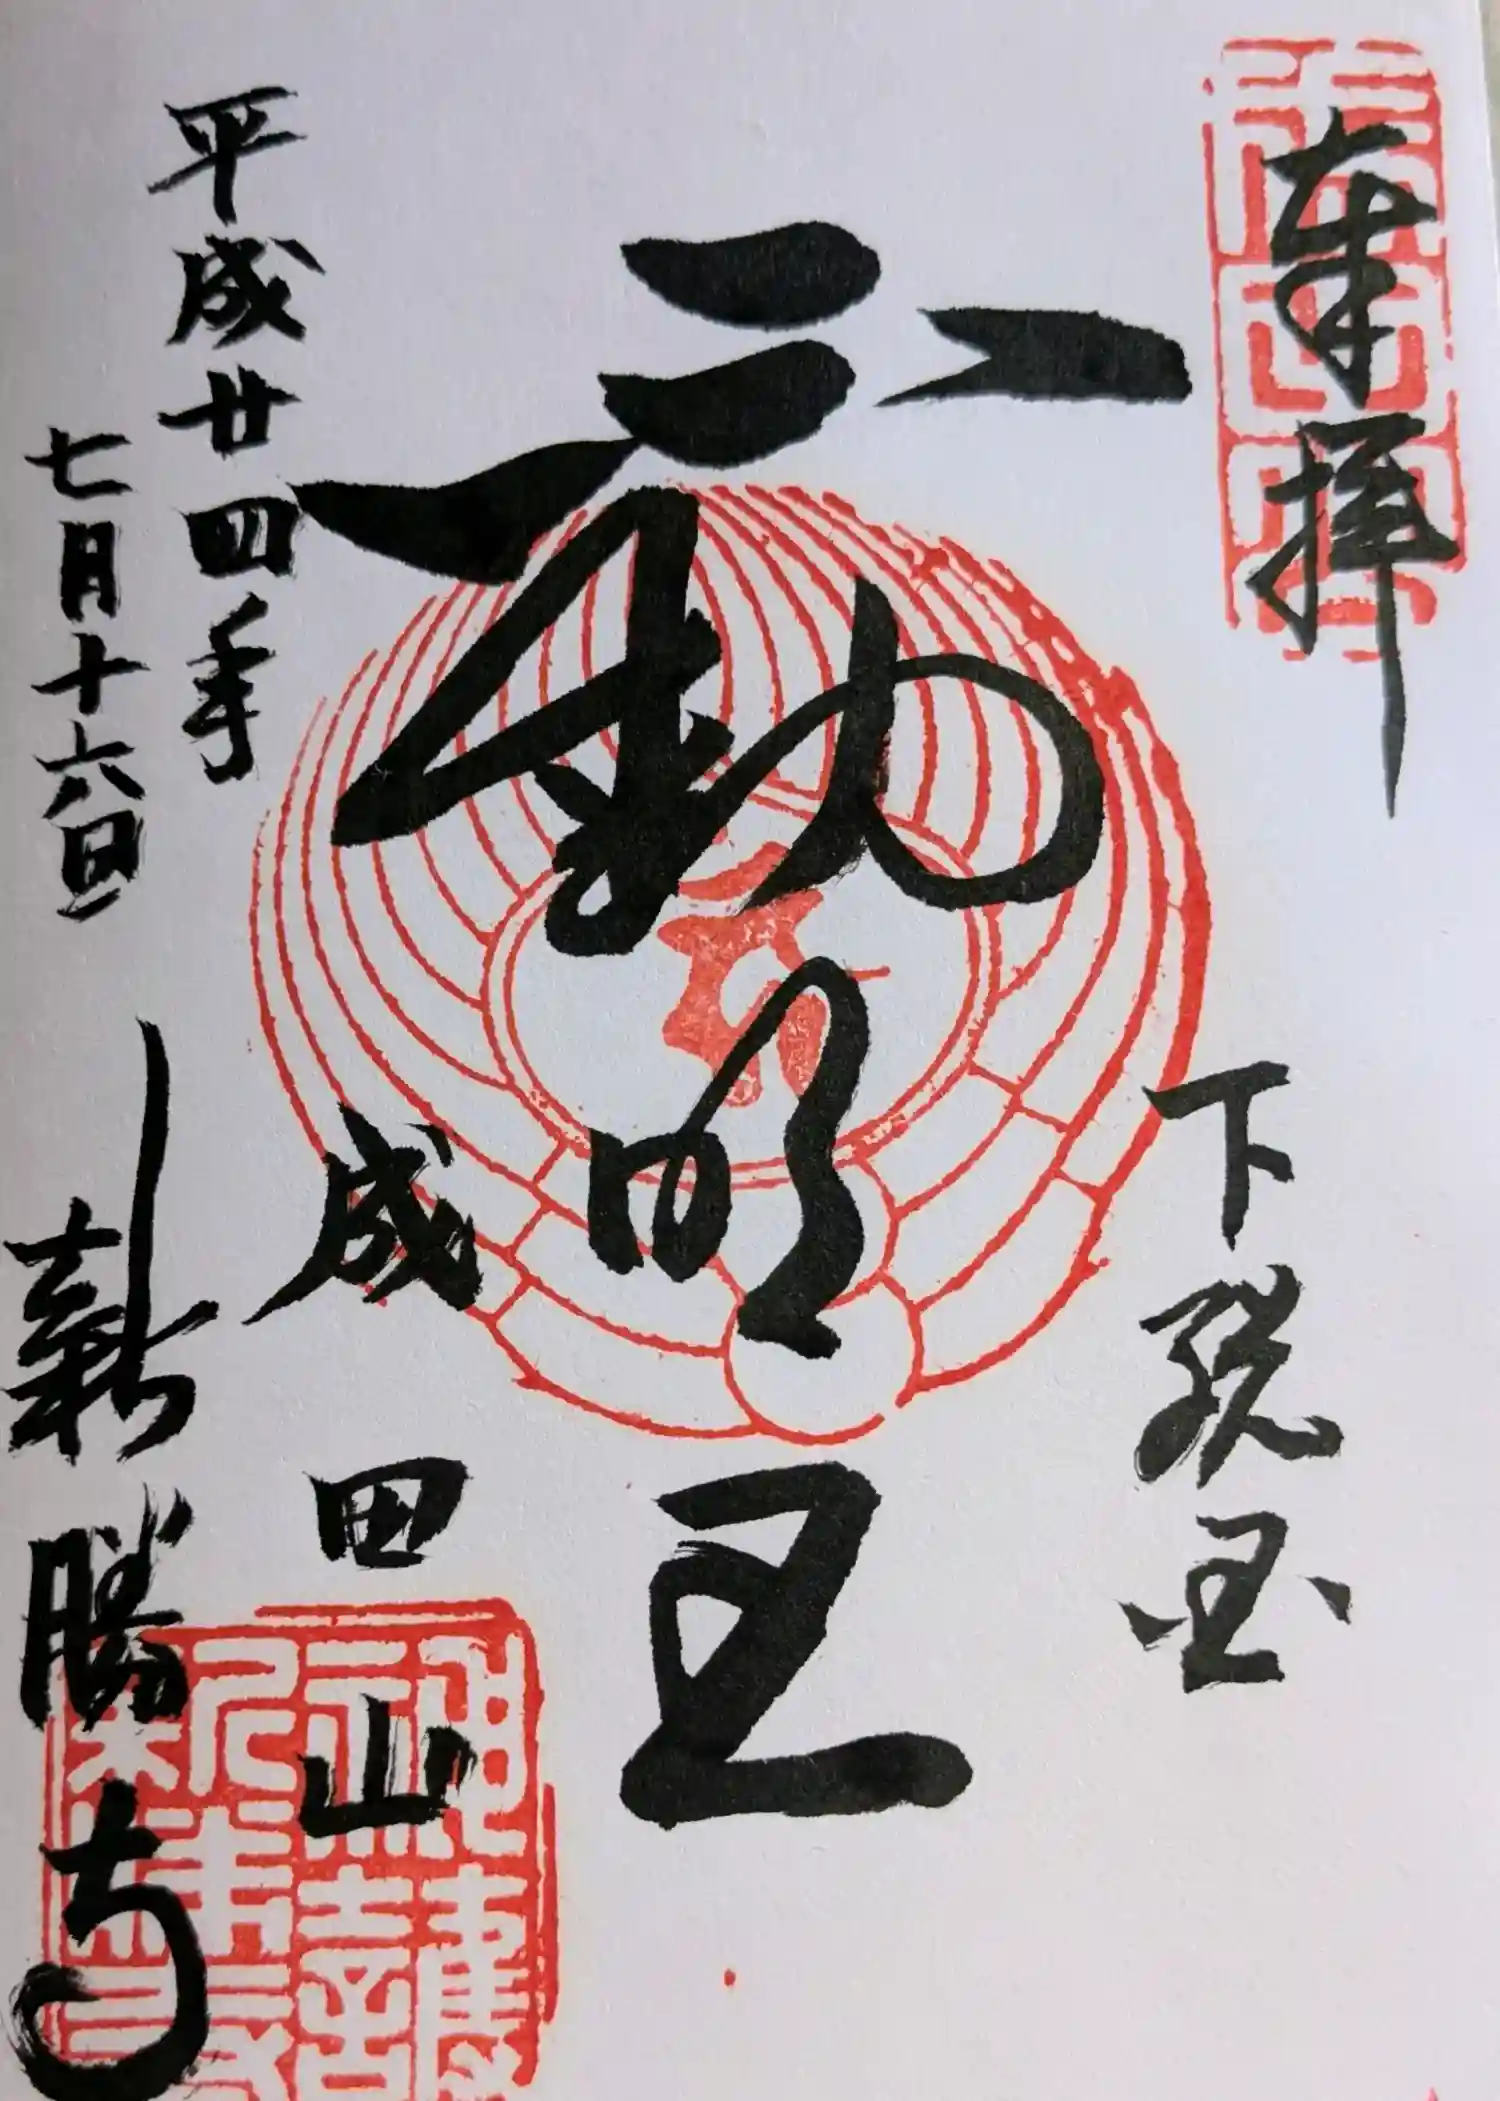 奉拝
下総国
不動明王
成田山
平成廿四年
七月十六日
新勝寺